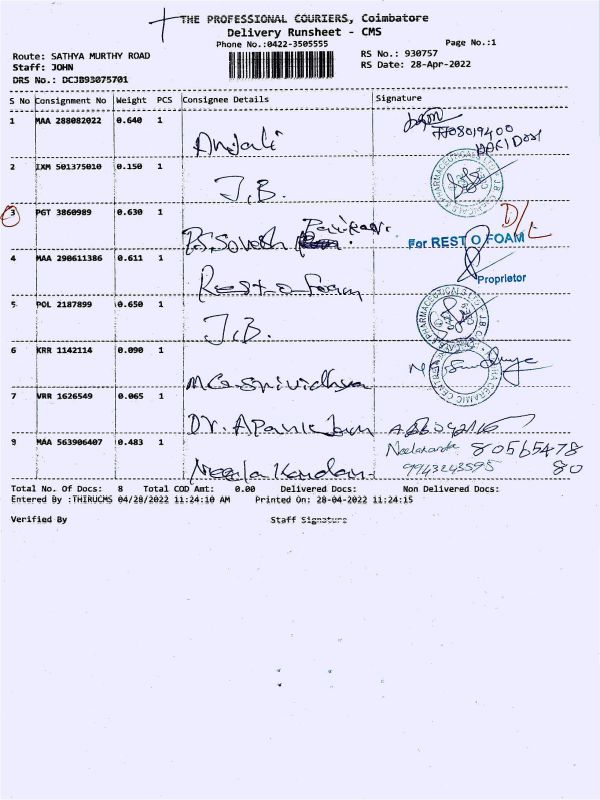 THE PROFESSIONAL COURIERS, Coimbatore
Delivery Runsheet - CMS
Phone No.:0422-3505555
Page No.:1
Route: SATHYA MURTHY ROAD
RS No.: 930757
Staff: JOHN
RS Date: 28-Apr-2022
DRS No.: DCJB93075701
S No Consignment No Weight PCS Consignee Details Signature
1 MAA 288082022 0.640 1
Anjali
2 IXM 501375010 0.150 1
J.B.
3 PGT 3860989 0.630 1
D/L
For REST O FOAM
4 MAA 290611386 0.611 1
Rest o foam
Proprietor
5 POL 2187899 0.650 1
J.B.
6 KRR 1142114 0.090 1
7 VRR 1626549 0.065 1
9 MAA 563906407 0.483 1
Neela Kandan.
9943243595
Total No. Of Docs: 8 Total COD Amt: 0.00 Delivered Docs: Non Delivered Docs:
Entered By :THIRUCMS 04/28/2022 11:24:10 AM Printed On: 28-04-2022 11:24:15
Verified By Staff Signature